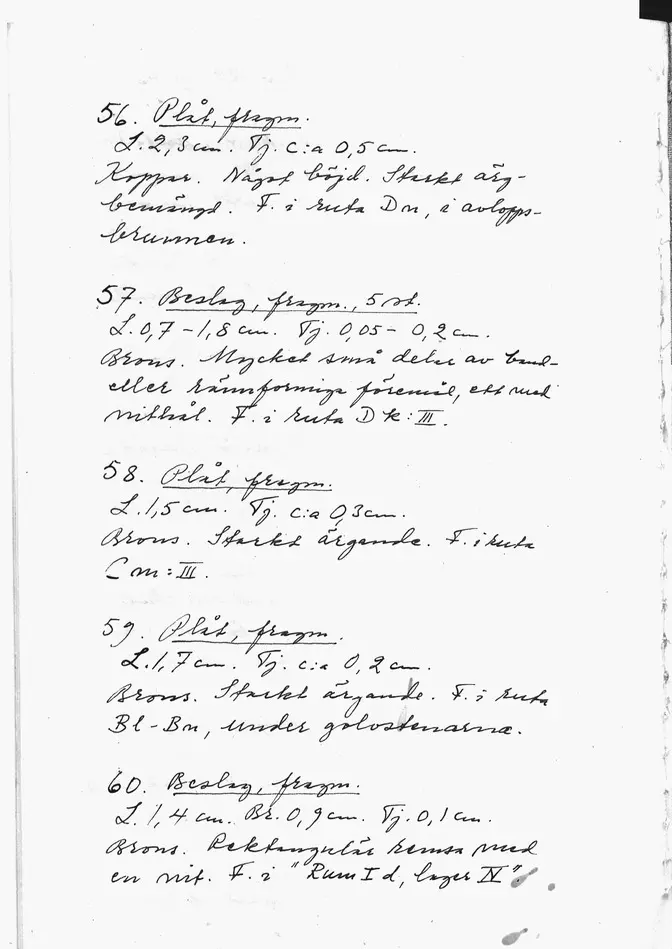 56. Plåt, fragm.
L. 2,3 cm. Tj. c:a 0,5 cm.
Koppar. Något böjd. Starkt ärg-
bemängd. F. i ruta Dn, i avlopps-
brunnen.
57. Beslag, fragm., 5 st.
L. 0,7 - 1,8 cm. Tj. 0,05 - 0,2 cm.
Brons. Mycket små delar av band-
eller rännformiga föremål, ett med
nithål. F. i ruta Dk:III.
58. Plåt, fragm.
L. 1,5 cm. Tj. c:a 0,3 cm.
Brons. Starkt ärgande. F. i ruta
Cm:III.
59. Plåt, fragm.
L. 1,7 cm. Tj. c:a 0,2 cm.
Brons. Starkt ärgande. F. i ruta
Bl-Bn, under golvstenarna.
60. Beslag, fragm.
L. 1,4 cm. Br. 0,9 cm. Tj. 0,1 cm.
Brons. Rektangulär remsa med
en nit. F. i "Rum I d, lager IV".